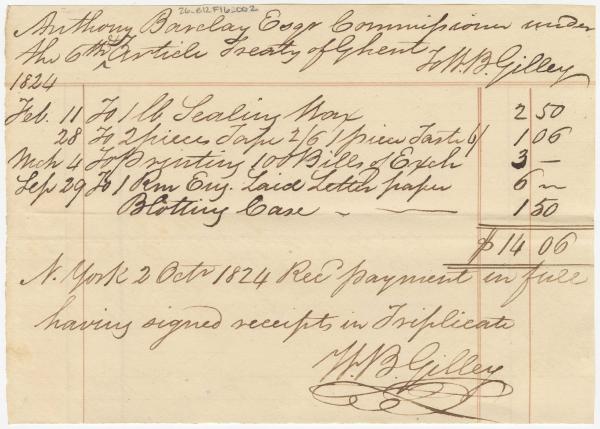 26-B12F16-002
Anthony Barclay Esqr Commissioner under
the 6th Article Treaty of Ghent
To W. B. Gilley
1824
Feb. 11 To 1 lb Sealing Wax 2 50
28 To 2 pieces Tape 2/6 1 piece Taste 6/ 1 06
Mch 4 To Printing 100 Bills of Exch 3 —
Sep 29 To 1 Rm Eng. Laid Letter paper 6 —
Blotting Case - — 1 50
$ 14 06
N. York 2 Octr 1824 Recd payment in full
having signed receipts in Triplicate
W. B. Gilley